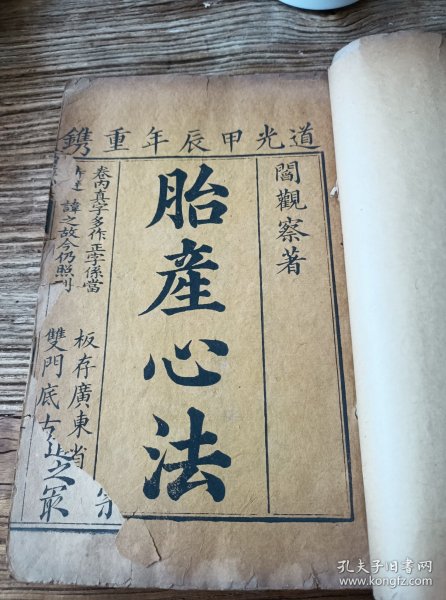 道光甲辰年重鐫
閻觀察著
胎產心法
卷內真字多作正字係當
諱之故今仍照刊
板存廣東省
雙門底
孔夫子旧书网
www.kongfz.com